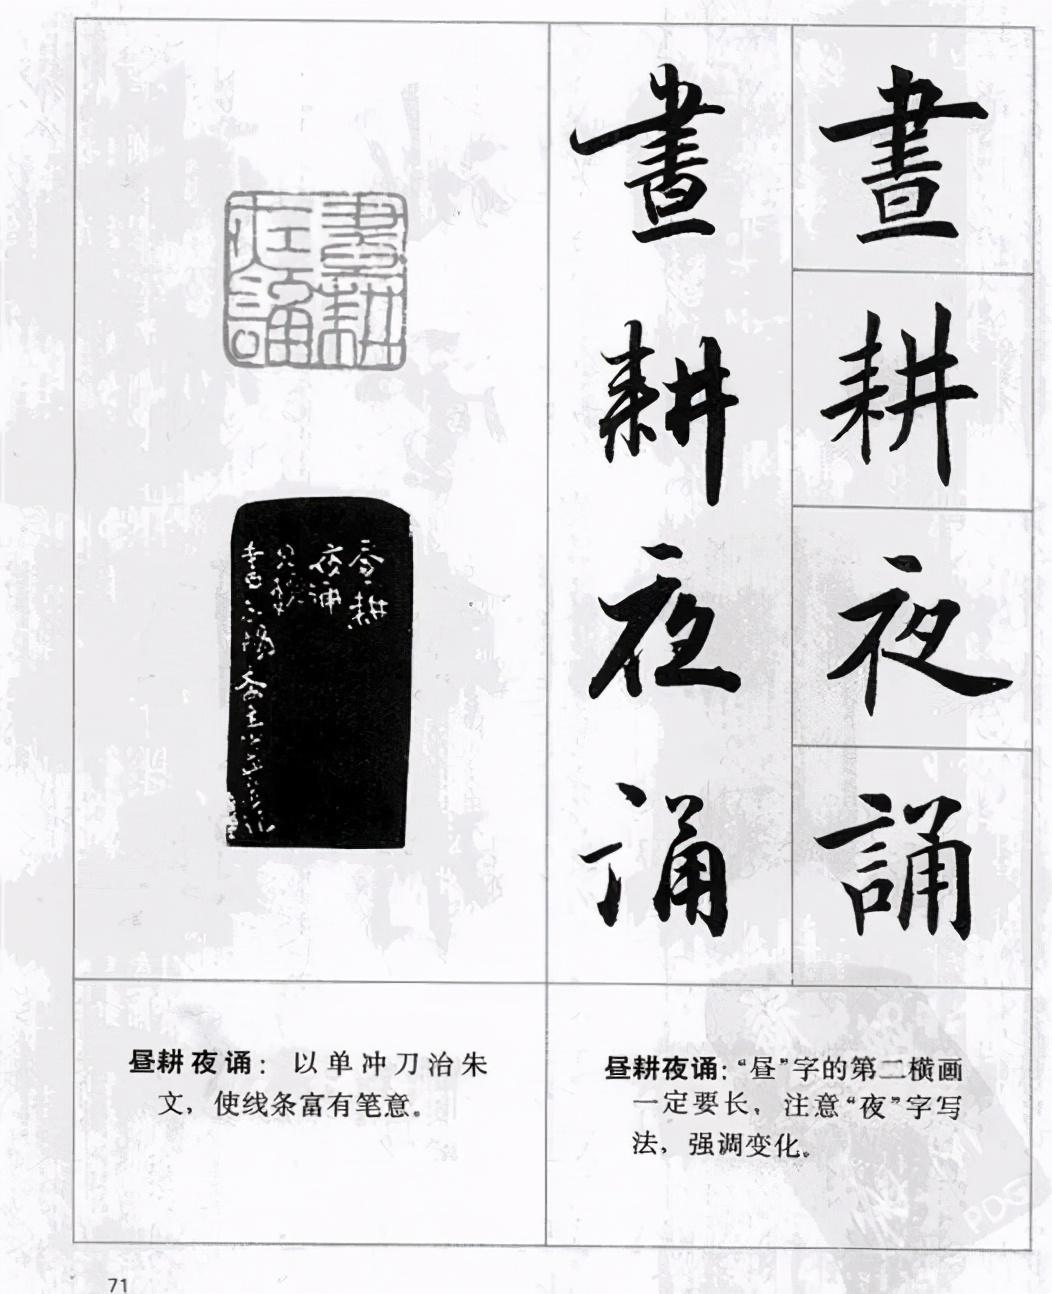 晝
耕
夜
誦
晝
耕
夜
誦
晝耕
夜誦
晝耕
夜誦
昼耕夜诵:“昼”字的第二横画
一定要长,注意“夜”字写
法,强调变化。
昼耕夜诵: 以单冲刀治朱
文,使线条富有笔意。
71
PDG